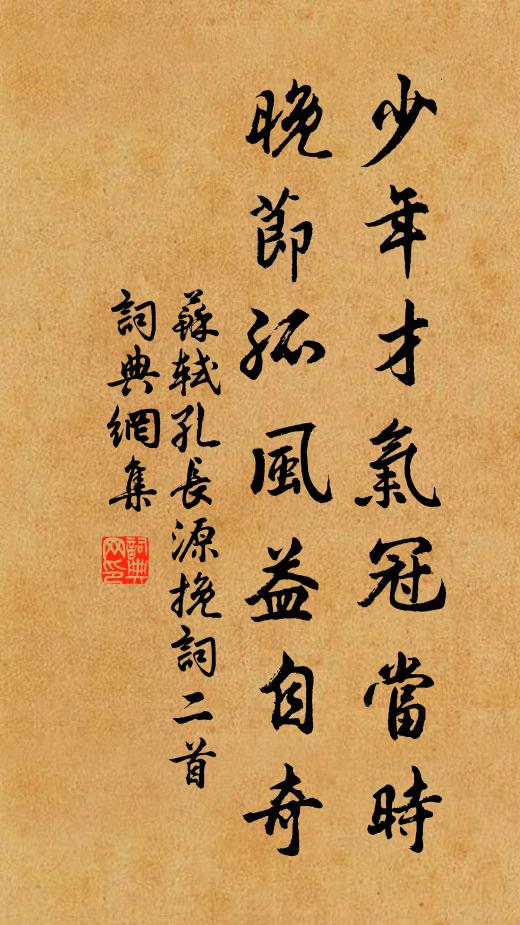 少年才氣冠當時
晚節孤風益自奇
蘇軾孔長源挽詞二首
詞典網集
詞典網印